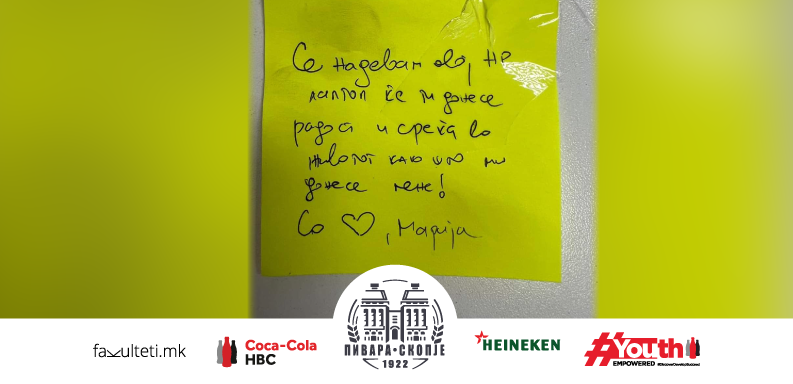 Се надевам
лаптоп ќе ти донесе
радост и среќа во
животот како што ми
донесе мене!
Со ♡, Марија
fakulteti.mk
Coca-Cola
HBC
ПИВАРА•СКОПЈЕ
1922
HEINEKEN
#Youth
EMPOWERED